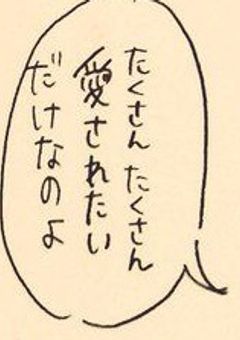 たくさん たくさん
愛されたい
だけなのよ